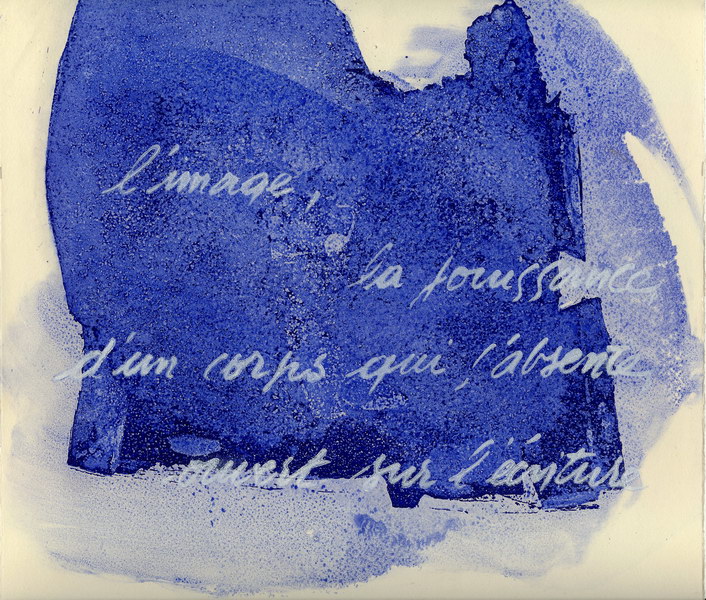 l'image,
la jouissance
d'un corps qui s'absente
ouvert sur l'écriture